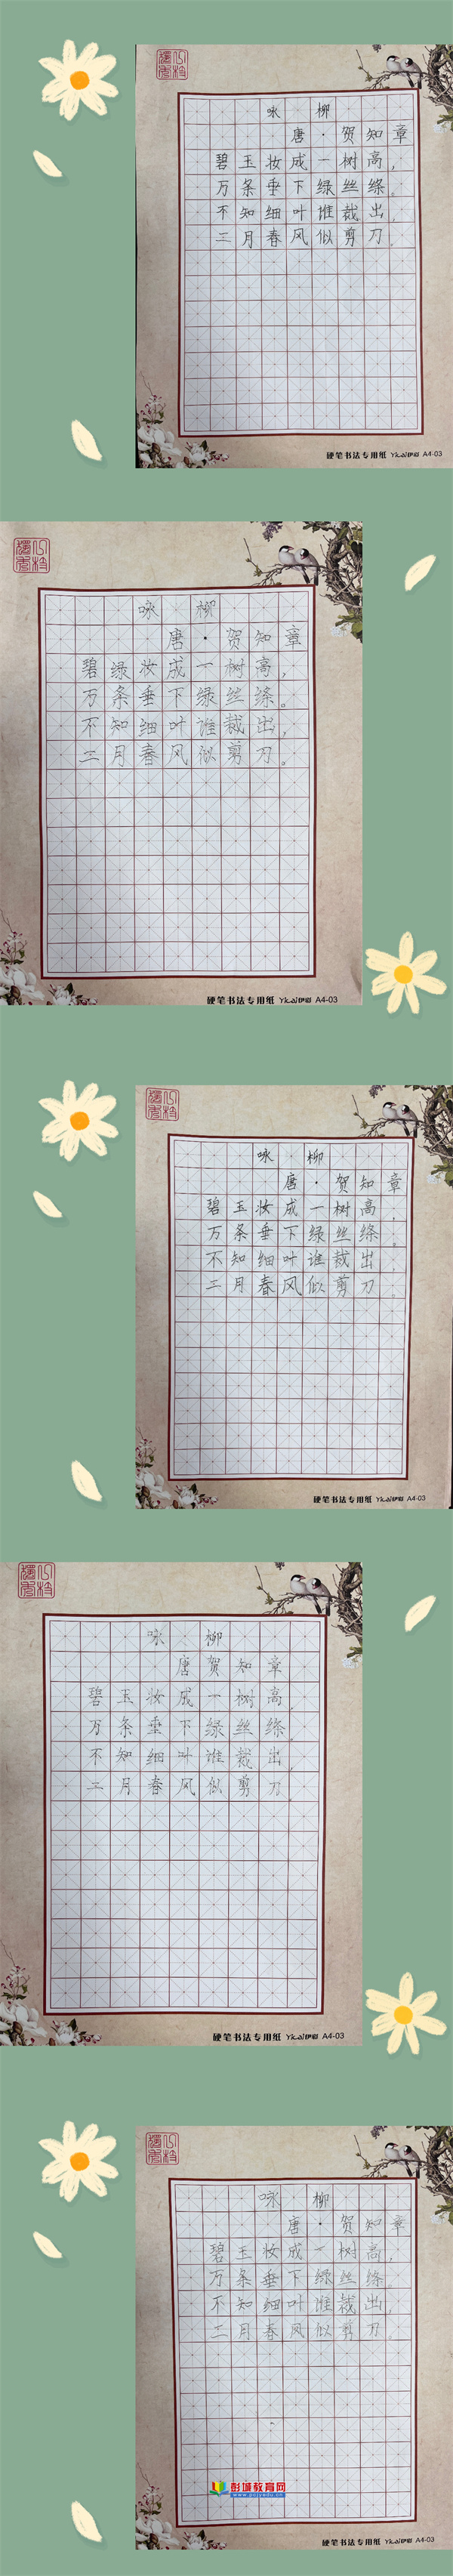 咏柳
唐·贺知章
碧玉妆成一树高，
万条垂下绿丝绦。
不知细叶谁裁出，
二月春风似剪刀。
硬笔书法专用纸 Yicai伊彩 A4-03
咏柳
唐·贺知章
碧绿妆成一树高，
万条垂下绿丝绦。
不知细叶谁裁出，
二月春风似剪刀。
硬笔书法专用纸 Yicai伊彩 A4-03
咏柳
唐·贺知章
碧玉妆成一树高，
万条垂下绿丝绦。
不知细叶谁裁出，
二月春风似剪刀。
硬笔书法专用纸 Yicai伊彩 A4-03
咏柳
唐贺知章
碧玉妆成一树高，
万条垂下绿丝绦。
不知细叶谁裁出，
二月春风似剪刀。
硬笔书法专用纸 Yicai伊彩 A4-03
咏柳
唐·贺知章
碧玉妆成一树高，
万条垂下绿丝绦。
不知细叶谁裁出，
二月春风似剪刀。
彭城教育网
www.pcjyedu.cn
硬笔书法专用纸 Yicai伊彩 A4-03